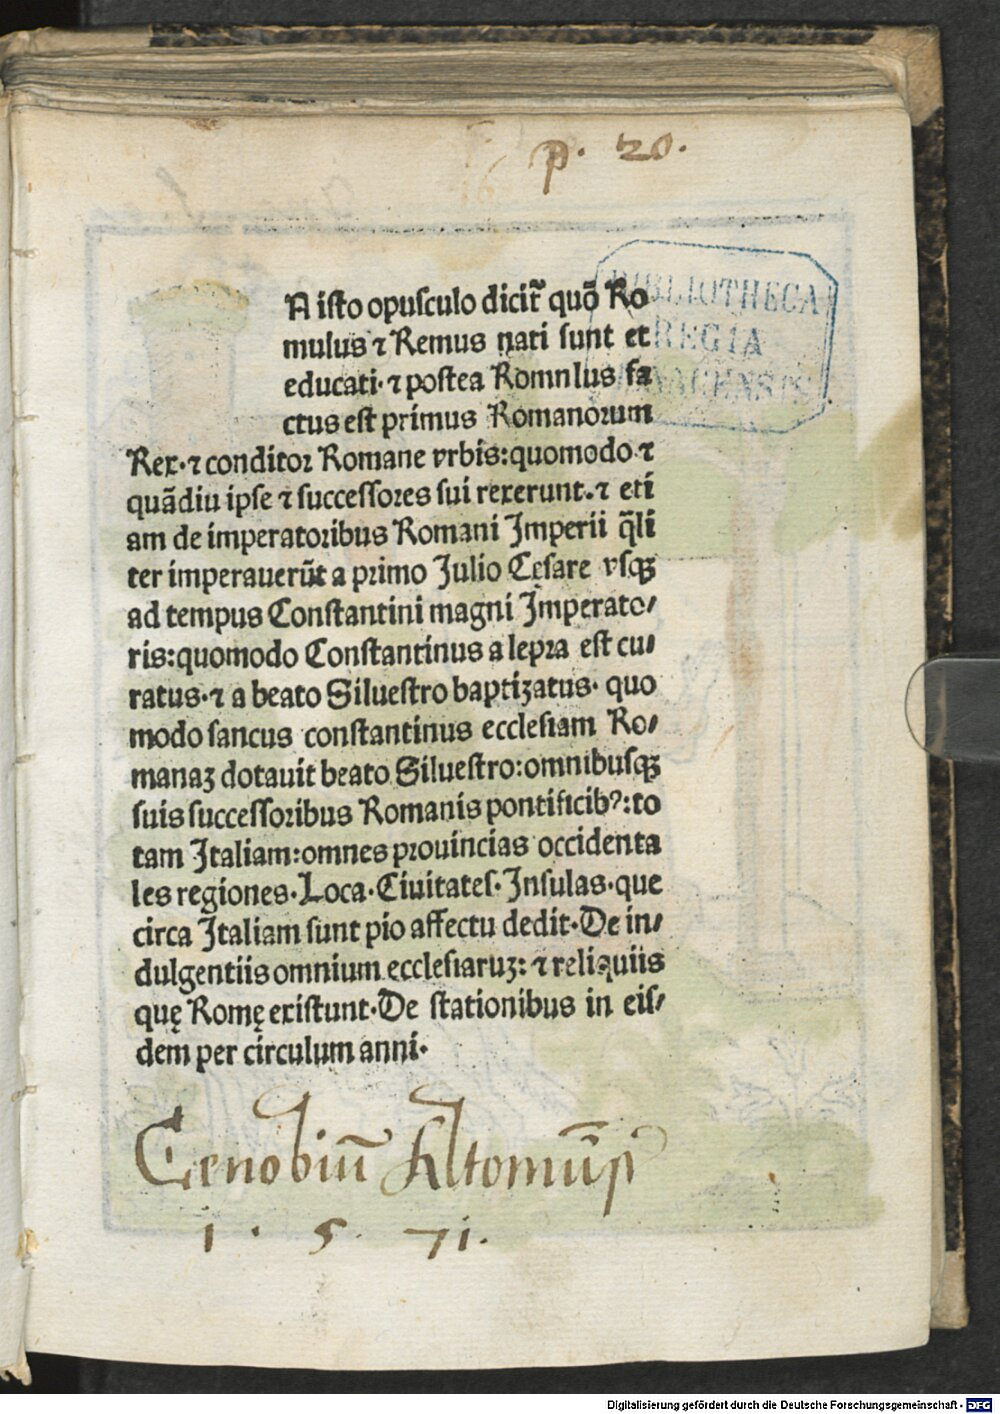 p. 20.
BIBLIOTHECA
REGIA
MONACENSIS
A isto opusculo dicit̃ quõ Ro
mulus ⁊ Remus nati sunt et
educati· ⁊ postea Romnlus fa
ctus est primus Romanorum
Rex·⁊ conditor Romane vrbis:quomodo ⁊
quãdiu ipse ⁊ successores sui rexerunt.⁊ eti
am de imperatoribus Romani Imperii q̃li
ter imperauerũt a primo Julio Cesare vsqꝫ
ad tempus Constantini magni Imperato/
ris:quomodo Constantinus a lepra est cu/
ratus·⁊ a beato Siluestro baptizatus· quo
modo sancus constantinus ecclesiam Ro/
manaʒ dotauit beato Siluestro:omnibusqꝫ
suis successoribus Romanis pontificibꝰ:to
tam Italiam:omnes prouincias occidenta
les regiones·Loca·Ciuitates·Insulas·que
circa Italiam sunt pio affectu dedit·De in/
dulgentiis omnium ecclesiaruʒ: ⁊ reliquiis
quę Romę existunt·De stationibus in eis/
dem per circulum anni·
Cenobiũ
1 · 5 · 71.
Digitalisierung gefördert durch die Deutsche Forschungsgemeinschaft - DFG